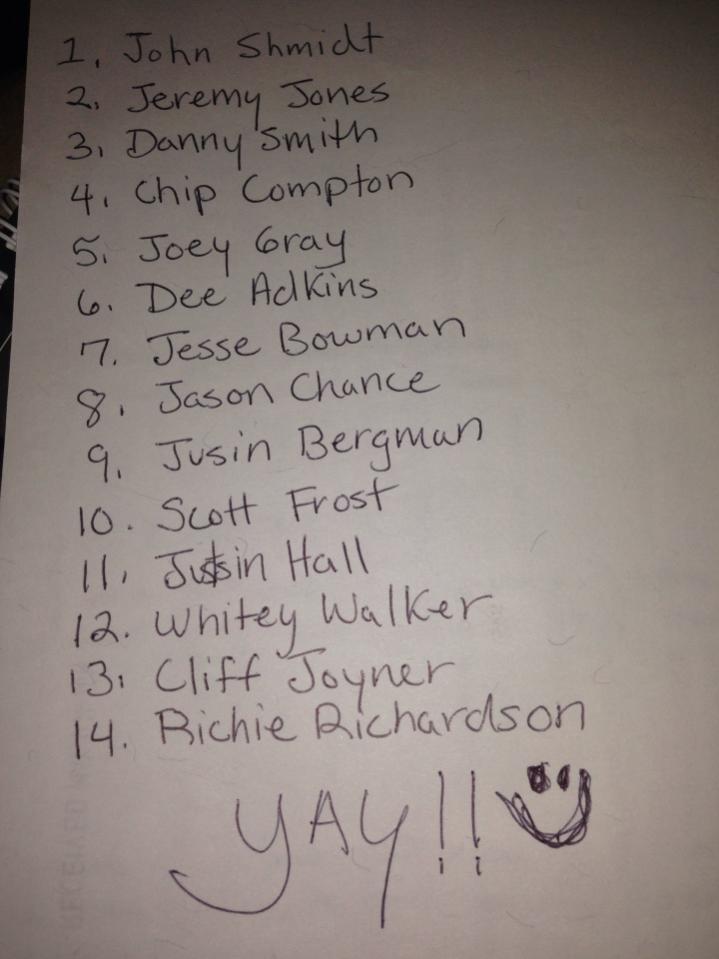 1. John Shmidt
2. Jeremy Jones
3. Danny Smith
4. Chip Compton
5. Joey Gray
6. Dee Adkins
7. Jesse Bowman
8. Jason Chance
9. Jusin Bergman
10. Scott Frost
11. Justin Hall
12. Whitey Walker
13. Cliff Joyner
14. Richie Richardson
YAY!!